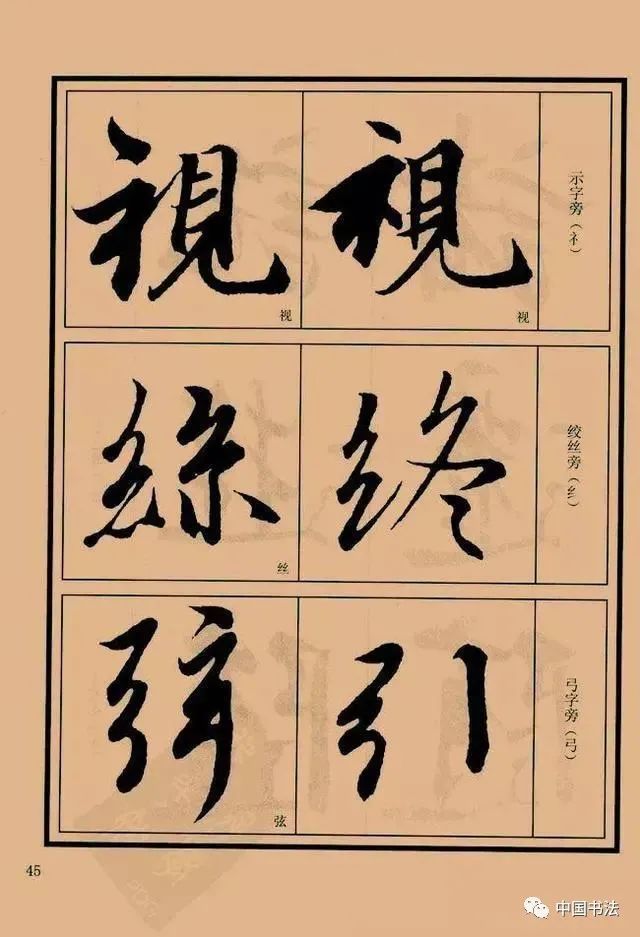 示字旁（礻）
視
视
視
视
绞丝旁（纟）
终
絲
丝
弓字旁（弓）
引
弦
弦
45
中国书法